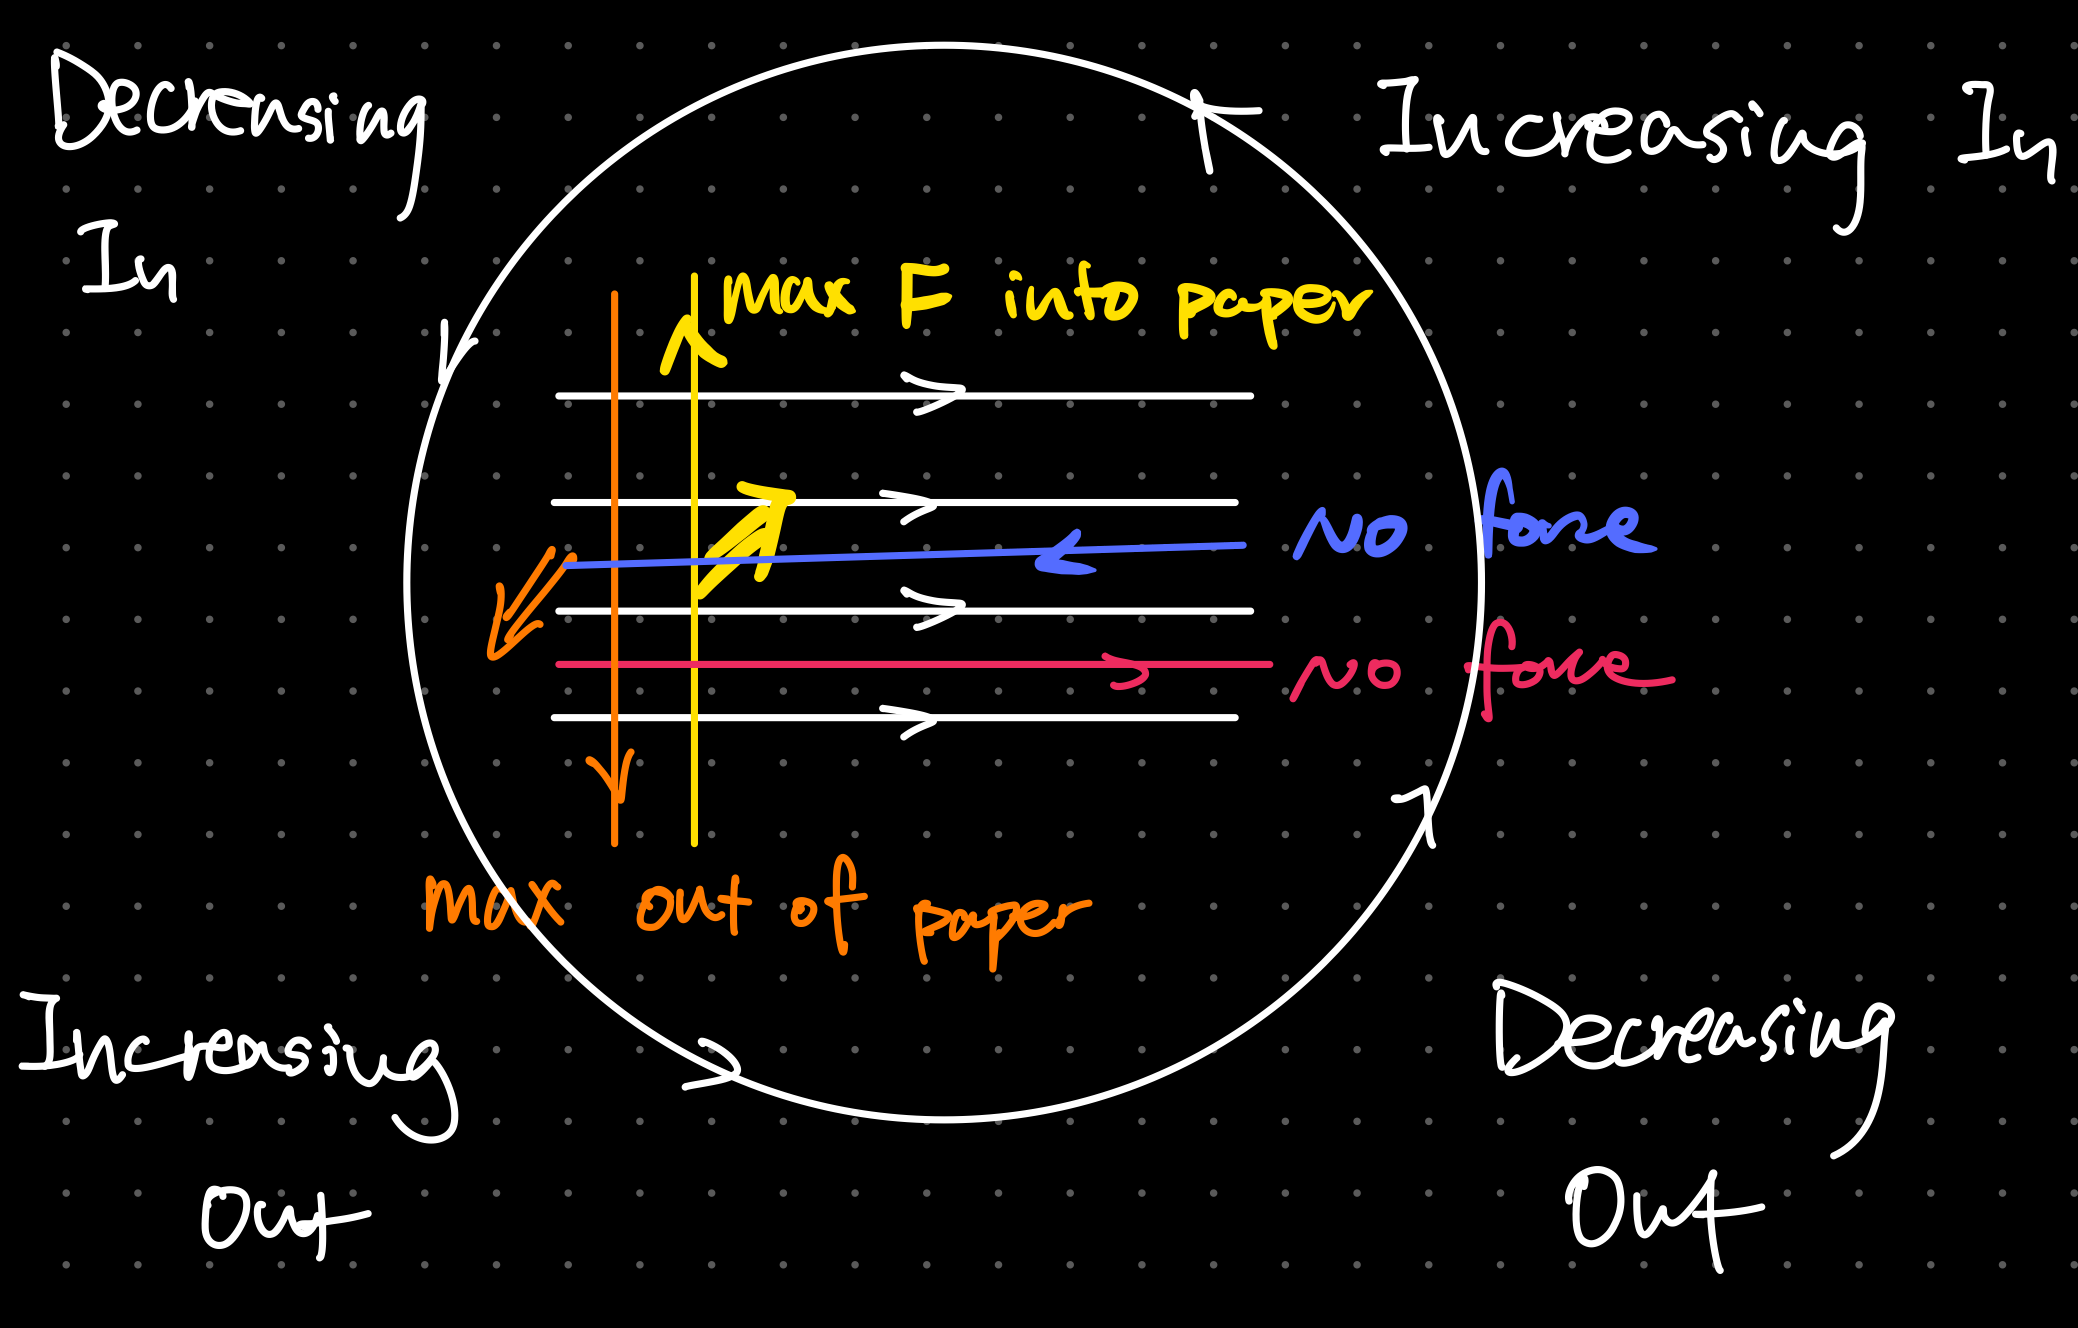 Decreasing
In
Increasing In
max F into paper
no force
no force
max out of paper
Increasing
Out
Decreasing
Out